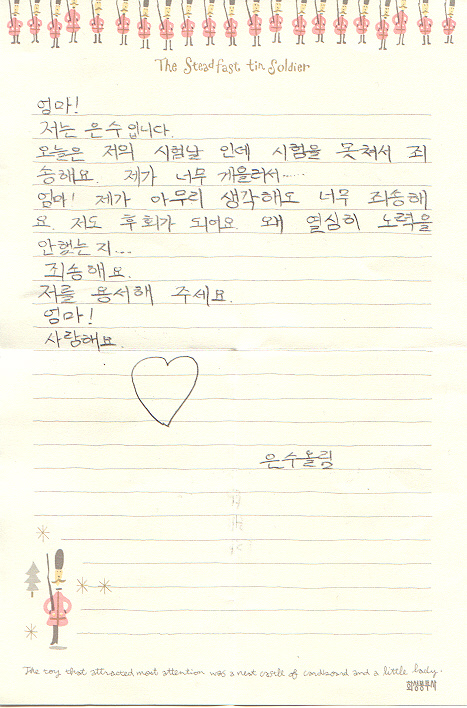 The Steadfast tin Soldier
엄마!
저는 은수입니다.
오늘은 저의 시험날 인데 시험을 못쳐서 죄
송해요. 제가 너무 게을러서......
엄마! 제가 아무리 생각해도 너무 죄송해
요. 저도 후회가 되어요. 왜 열심히 노력을
안했는지...
죄송해요.
저를 용서해 주세요.
엄마!
사랑해요.
은수올림
The toy that attracted most attention was a neat castle of cardboard and a little lady.